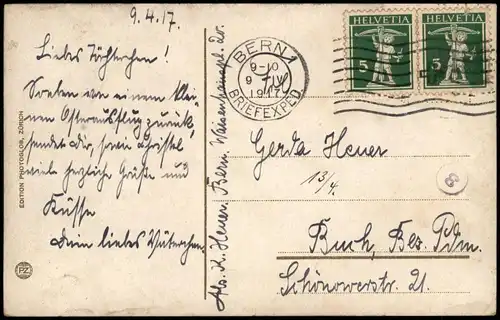 9.4.17.
Liebes Töchterchen!
Soeben von einem klei-
nen Osterausflug zurück,
sendet dir, sowie Christel
viele herzliche Grüße und
Küsse
Dein liebes Väterchen.
EDITION PHOTOGLOB, ZÜRICH
PZ
Abs. K. Heuer. Bern.
BERN 1
9-10
9 IV
1917
BRIEFEXPED.
HELVETIA
5
HELVETIA
5
Gerda Heuer
13/4.
8
Buch, Bez. Pdm.
Schönowerstr. 21.